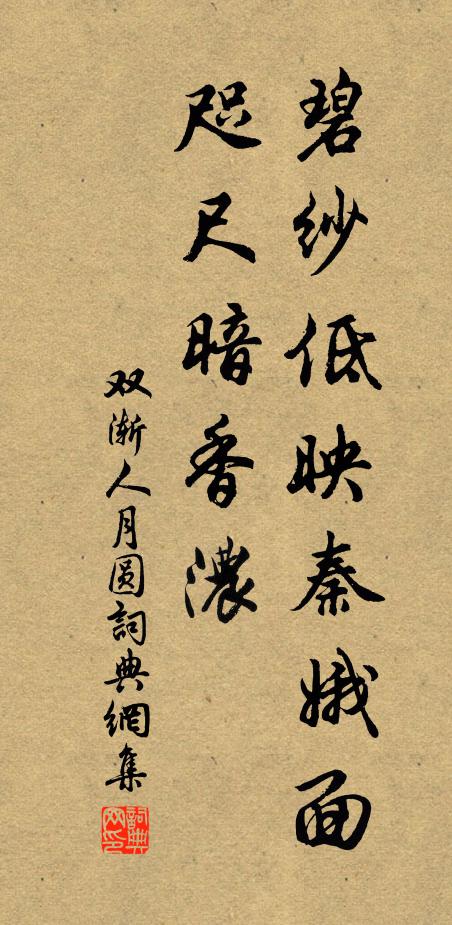 碧纱低映秦娥面
咫尺暗香濃
双渐人月圆詞典網集
詞典網印